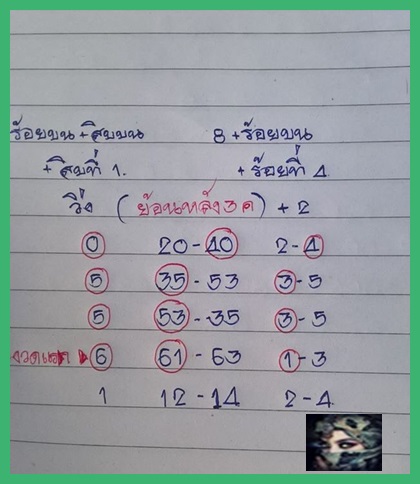 ร้อยบน+สิบบน 8+ร้อยบน
+สิบที่ 1. +ร้อยที่ 4
วิ่ง (ย้อนหลัง3ค) +2
0 20-40 2-4
5 35-53 3-5
5 53-35 3-5
งวดแรก 6 61-63 1-3
1 12-14 2-4